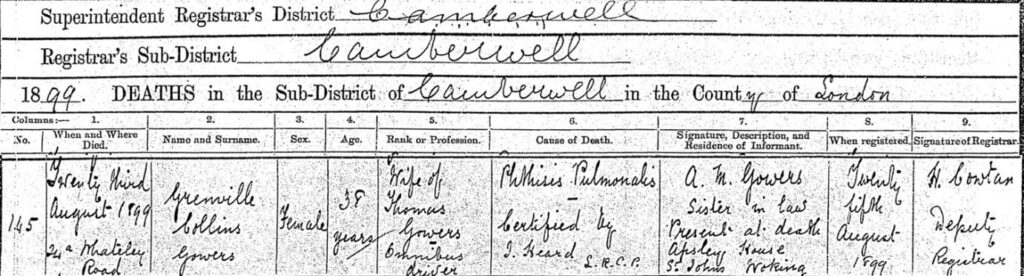 Superintendent Registrar's District Camberwell
Registrar's Sub-District Camberwell
1899. DEATHS in the Sub-District of Camberwell in the County of London
Columns:— 1. 2. 3. 4. 5. 6. 7. 8. 9.
No. When and Where Died. Name and Surname. Sex. Age. Rank or Profession. Cause of Death. Signature, Description, and Residence of Informant. When registered. Signature of Registrar.
145
Twenty third
August 1899
24a Whateley
Road
Grenville
Collins
Gowers
Female
38
years
Wife of
Thomas
Gowers
Omnibus
driver
Phthisis Pulmonalis
Certified by
J. Heard L.R.C.P.
A. M. Gowers
Sister in law
Present at death
Apsley House
St Johns Woking
Twenty
fifth
August
1899
H. Cowtan
Deputy
Registrar